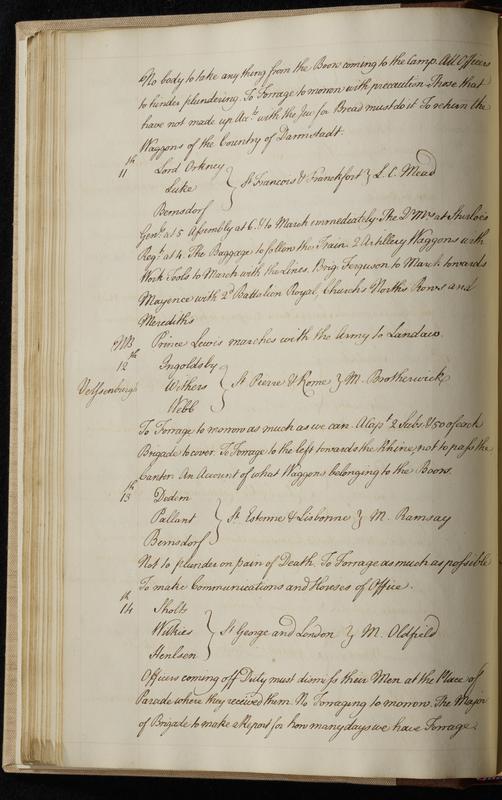 No body to take any thing from the Boors coming to the Camp. All Officers
to hinder plundering. To Forrage to morrow with precaution. Those that
have not made up Acc.ts with the Jew for Bread must do it. To return the
Waggons of the Country of Darmstadt.
11th Lord Orkney
Luke } St Francois & Franckfort } L. C. Mead
Bernsdorf
Gen.l at 5 Assembly at 6. & to March immediately. The Qr Mrs at Sturlers
Regt at 4. The Baggage to follow the Train. 2 Artillery Waggons with
Work Tools to March with the Lines. Brig. Ferguson to March towards
Mayence with 2d Battalion Royal, Church's Norths Rows and
Merediths
NB. Prince Lewis marches with the Army to Landaw.
12th Ingoldsby
Velssenburgh Withers } St Pierre & Rome } M. Brotherwick
Webb
To Forrage to morrow as much as we can. A Capt 2 Subs. & 50 of each
Brigade to cover. To Forrage to the left towards the Rhine, not to pass the
Canter. An Account of what Waggons belonging to the Boors.
13th Dedem
Pallant } St Estenne & Lisbonne } M. Ramsay
Bernsdorf
Not to plunder on pain of Death. To Forrage as much as possible
To make Communications and Houses of Office.
14th Sholts
Wilkies } St George and London } M. Oldfield
Henlsen
Officers coming off Duty must dismiss their Men at the Place of
Parade where they received them. No Forraging to morrow. The Major
of Brigade to make a Report for how many days we have Forrage.